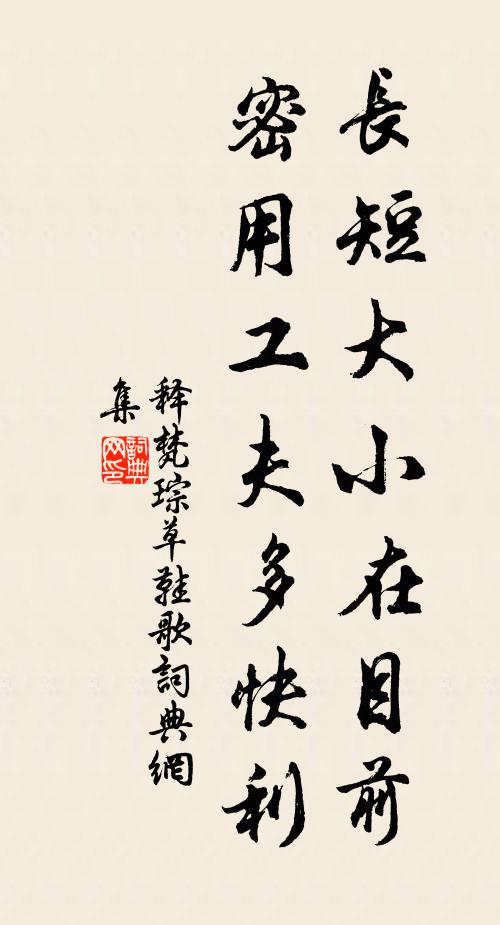 長短大小在目前
密用工夫多快利
释梵琮草鞋歌詞典網
集
詞典
网印